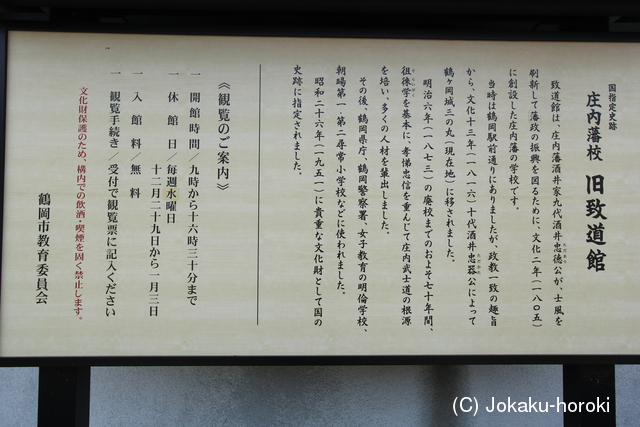 国指定史跡
庄内藩校 旧致道館
致道館は、庄内藩酒井家九代酒井忠徳公が、士風を
刷新して藩政の振興を図るために、文化二年(一八〇五)
に創設した庄内藩の学校です。
当時は鶴岡駅前通りにありましたが、政教一致の趣旨
から、文化十三年(一八一六)十代酒井忠器公によって
鶴ヶ岡城三の丸(現在地)に移されました。
明治六年(一八七三)の廃校までのおよそ七十年間、
徂徠学を基本に、孝悌忠信を重んじて庄内武士道の根源
を培い、多くの人材を輩出しました。
その後、鶴岡県庁、鶴岡警察署、女子教育の明倫学校、
朝暘第一・第二尋常小学校などに使われました。
昭和二十六年(一九五一)に貴重な文化財として国の
史跡に指定されました。
《観覧のご案内》
一 開館時間/九時から十六時三十分まで
一 休館日/毎週水曜日
十二月二十九日から一月三日
一 入館料/無料
一 観覧手続き/受付で観覧票に記入ください
文化財保護のため、構内での飲酒・喫煙を固く禁止します。
鶴岡市教育委員会
(C) Jokaku-horoki